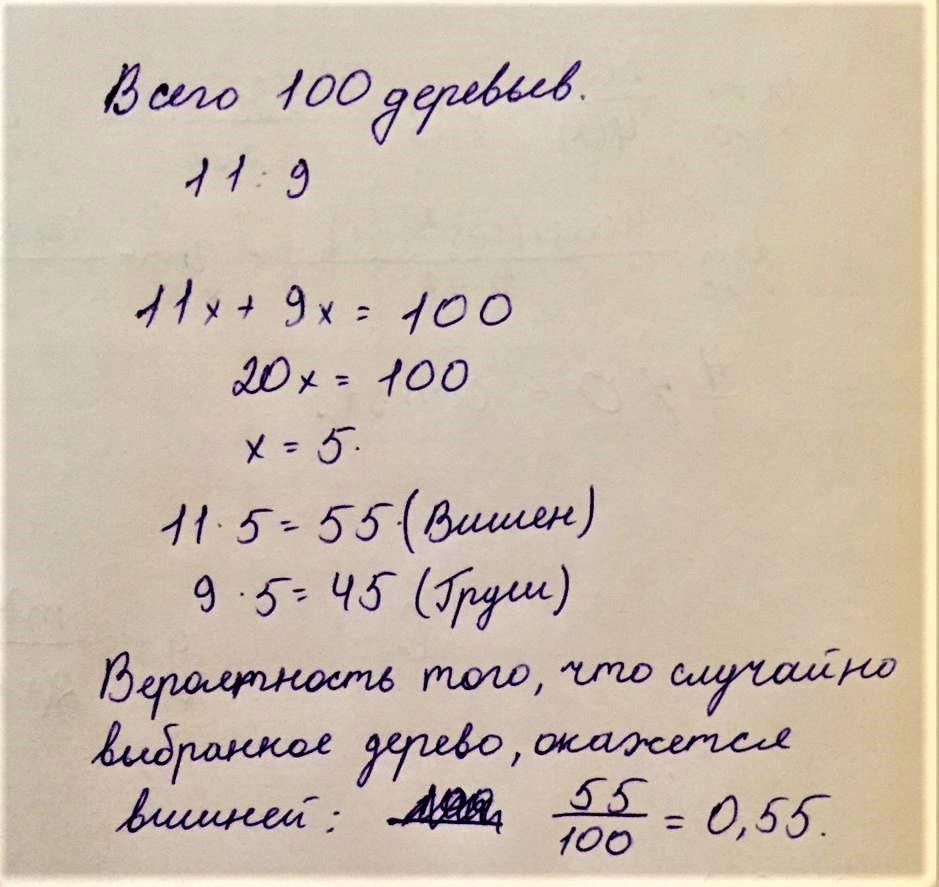 Всего 100 деревьев.
11 : 9
11x + 9x = 100
20x = 100
x = 5.
11 · 5 = 55 (Вишен)
9 · 5 = 45 (Груш)
Вероятность того, что случайно
выбранное дерево, окажется
вишней: 55/100 = 0,55.